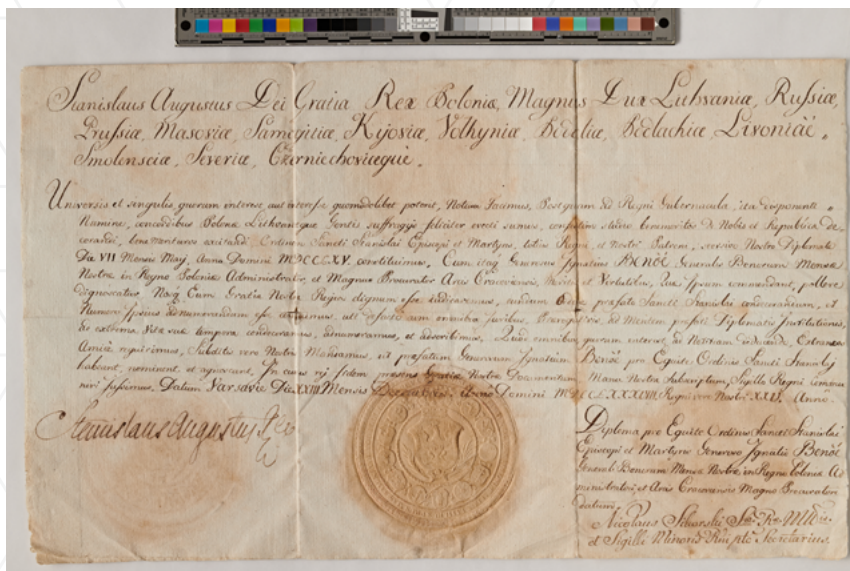 Stanislaus Augustus Dei Gratia Rex Poloniæ, Magnus Dux Lithvaniæ, Russiæ,
Prussiæ, Masoviæ, Samogitiæ, Kijoviæ, Volhyniæ, Podoliæ, Podlachiæ, Livoniæ,
Smolensciæ, Severiæ, Czerniechoviæque.
Universis et singulis, quorum interest aut interesse quomodolibet poterit, Notum facimus, Postquam ad Regni Gubernacula, ita disponente
Numine, concordibus Polonæ Lithvanæque Gentis suffragijs feliciter evecti sumus, studio benemeritos de Nobis et Republica de-
corandi, Ordinem Sancti Stanislai Episcopi et Martyris, totius Regni, et Nostri Patroni, Nostro Diplomate
Die VII Mensis Maij, Anno Domini MDCCLXV. constituimus. Cum itaq Generosus Ignatius BENOÉ Generalis Bonorum Mensæ
Nostræ in Regno Poloniæ Administrator, et Magnus Procurator Arcis Cracoviensis, et Virtutibus, quæ Ipsum commendant, pollere
dignoscatur Eum Gratia Nostra Regia dignum esse judicavimus, præfati Sancti Stanislai condecorandum, et
Numero Ipsius adnumerandum esse uti de facto cum omnibus juribus, ad Mentem præfati Diplomatis Institutionis,
ad extrema Vitæ suæ tempora condecoramus, adnumeramus, et adscribimus. Quod omnibus quorum interest, ad Notitiam deducendo, Extraneos
Amice requirimus, Subditis vero Nostris Mandamus, ut præfatum Generosum Ignatium Benoé pro Equite Ordinis Sancti Stanislai
habeant, nominent et agnoscant. In cujus rei fidem præsens Gratiæ Nostræ Documentum Manu Nostra subscriptum, Sigillo Regni
niri jussimus. Datum Varsaviæ Die XXIII Mensis Decembris, Anno Domini Regni vero Nostri XXV. Anno.
Stanislaus Augustus Rex
Diploma pro Equite Ordinis Sancti Stanislai
Episcopi et Martyris Generoso Ignatio Benoé
Generali Bonorum Mensæ Nostræ in Regno Poloniæ Ad-
ministratori et Arcis Cracoviensis Magno Procuratori
datum.
Nicolaus Sikorski
et Sigilli Minoris Secretarius.